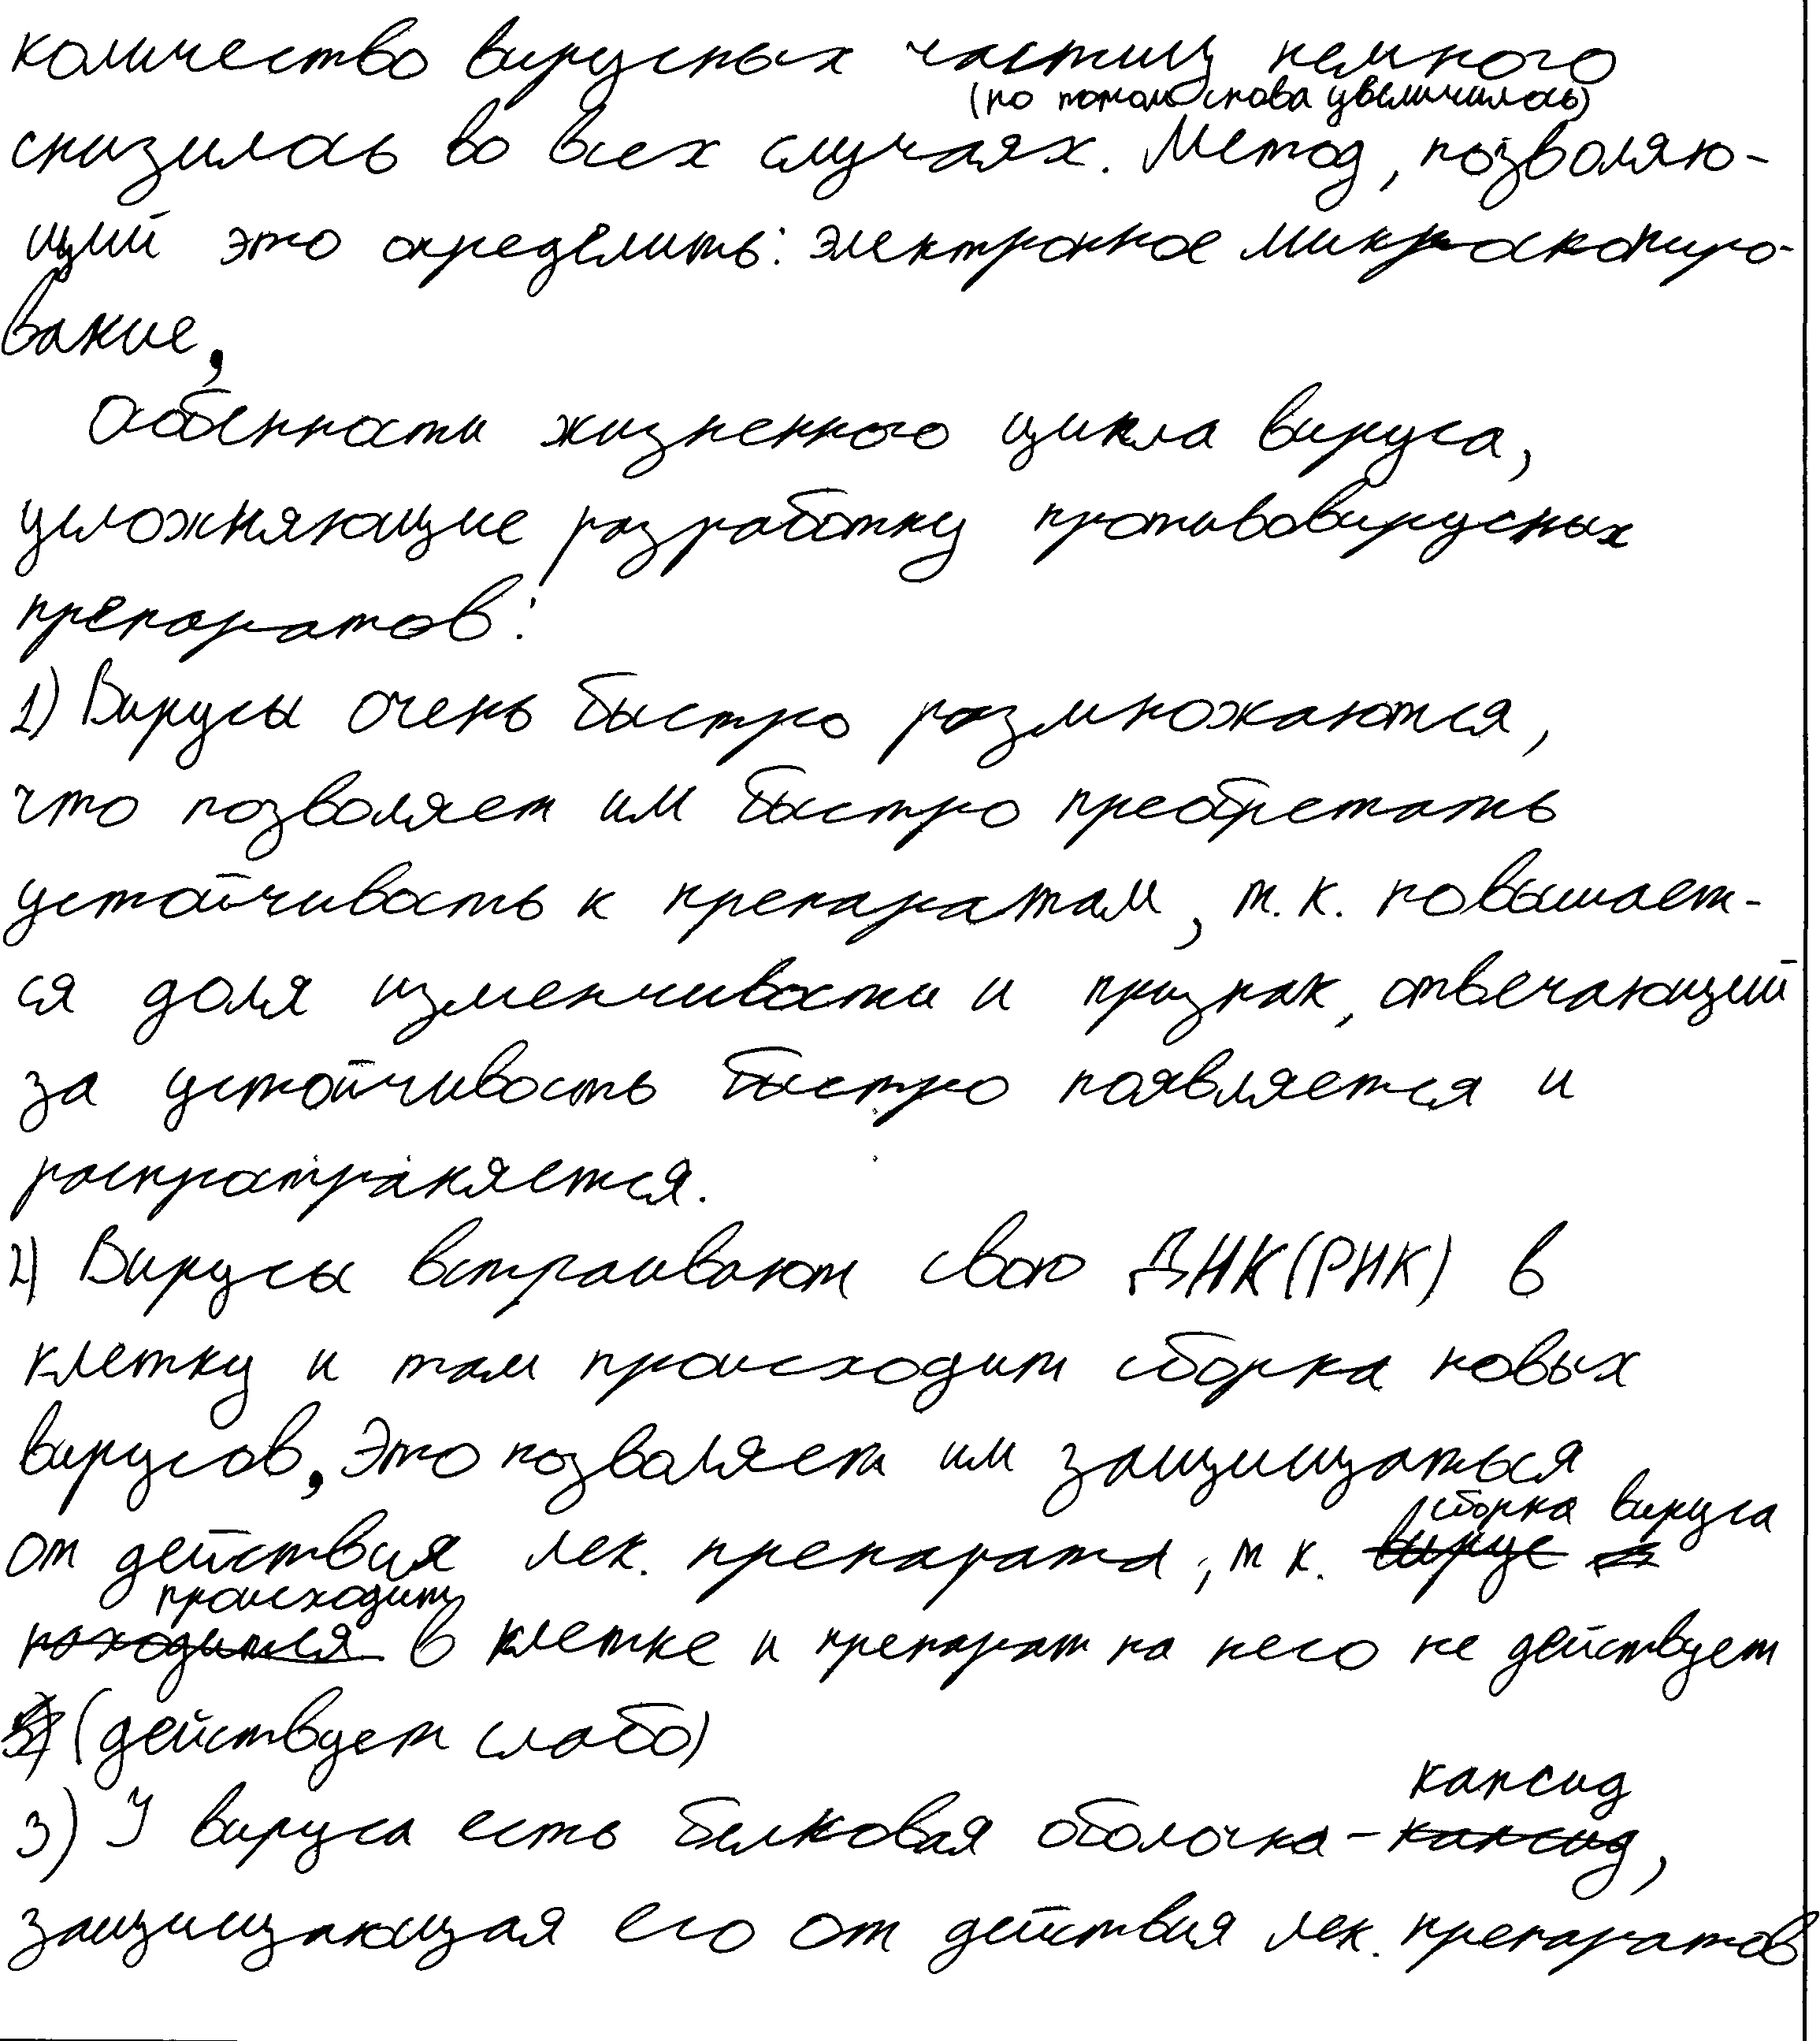 количество вирусных частиц немного
(но потом снова увеличилось)
снизилось во всех случаях. Метод, позволяю-
щий это определить: электронное микроскопиро-
вание,
Особенности жизненного цикла вируса,
усложняющие разработку противовирусных
препаратов:
1) Вирусы очень быстро размножаются,
что позволяет им быстро преобретать
устойчивость к препаратам, т.к. повышает-
ся доля изменчивости и признак, отвечающий
за устойчивость быстро появляется и
распространяется.
2) Вирусы встраивают свою ДНК(РНК) в
клетку и там происходит сборка новых
вирусов. Это позволяет им защищаться
сборка вируса
от действия лек. препарата, т к. вирус
происходит
находится в клетке и препарат на него не действует
(действует слабо)
капсид
3) У вируса есть белковая оболочка - капсид,
защищающая его от действия лек. препаратов